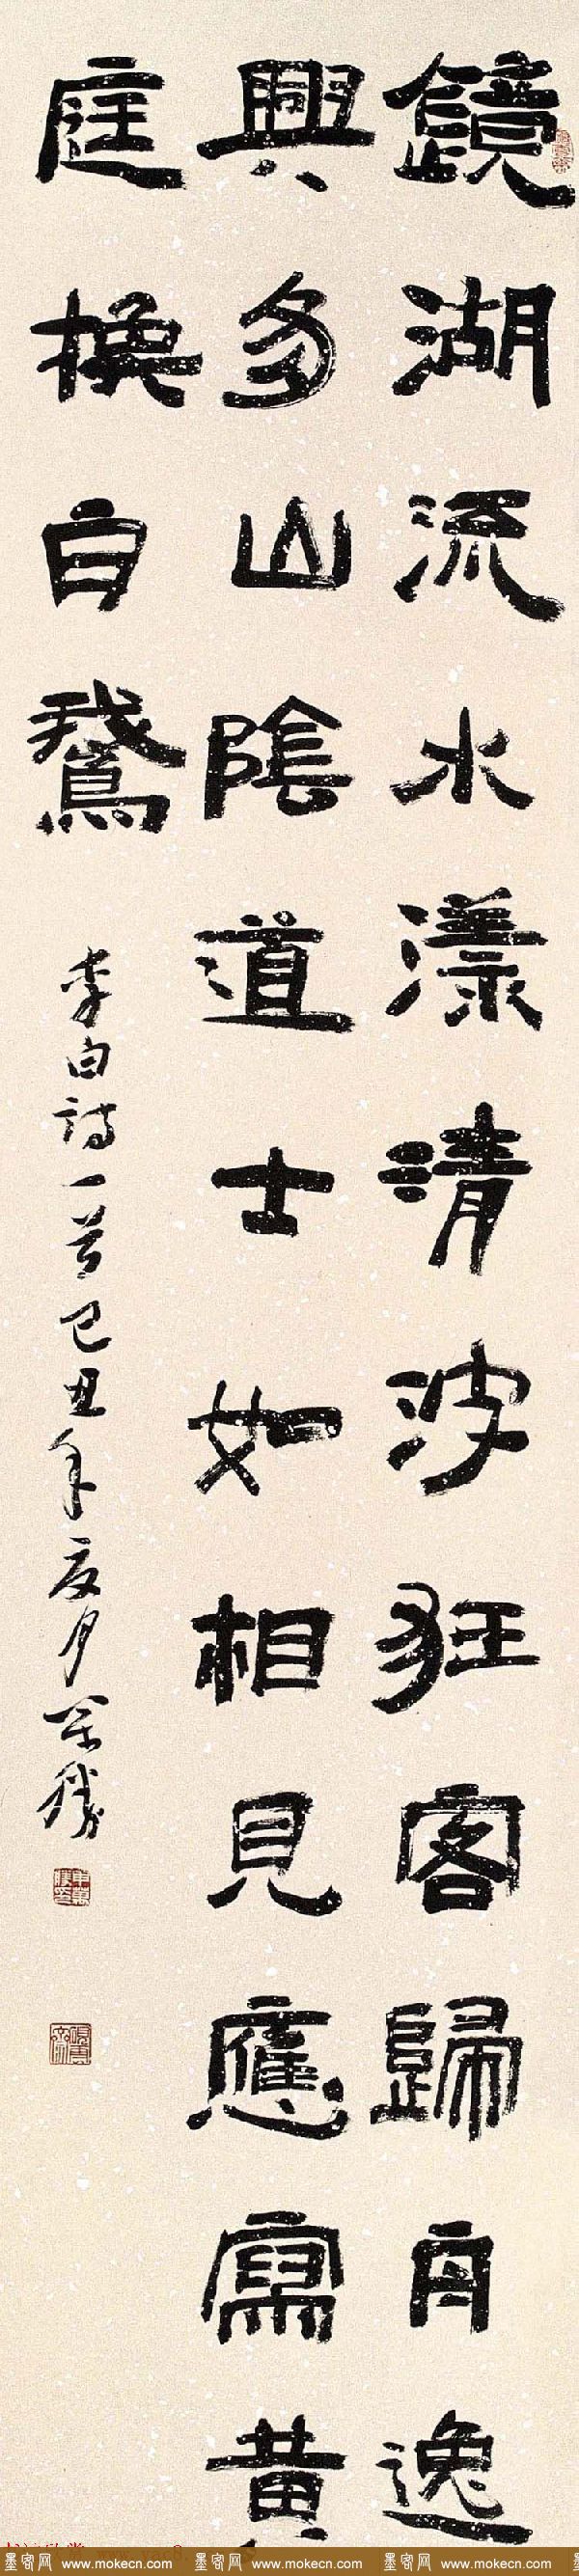 鏡湖流水漾清波狂客歸舟逸
興多山陰道士如相見應寫黃
庭換白鵝
李白詩一首己丑年夏月萬勝
墨客网 www.mokecn.com 墨客网 www.mokecn.com 墨客网 www.mokecn.com 墨客网 www.mokecn.com